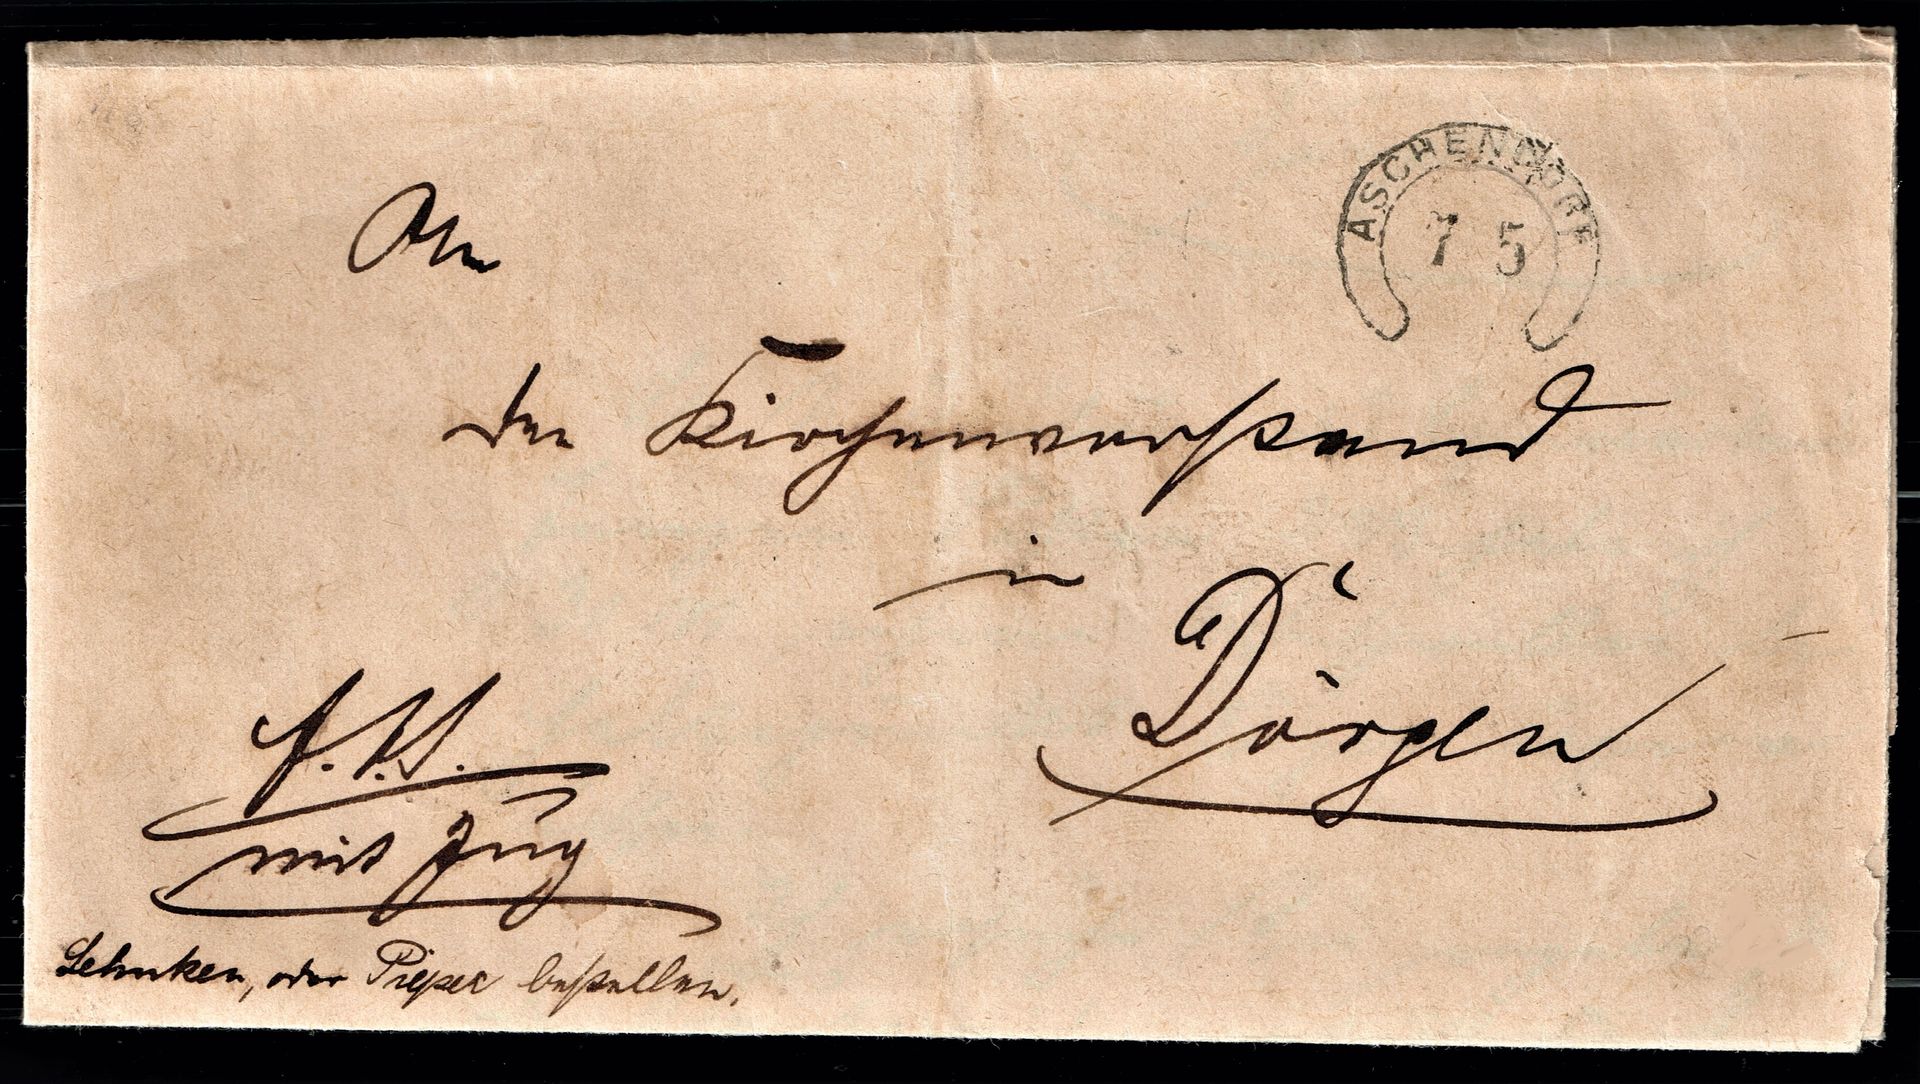 ASCHENDORF
7 5
An
den Kirchenvorstand
in
Dörgen
mit Zug
Lehnken, oder Pieper bestellen.